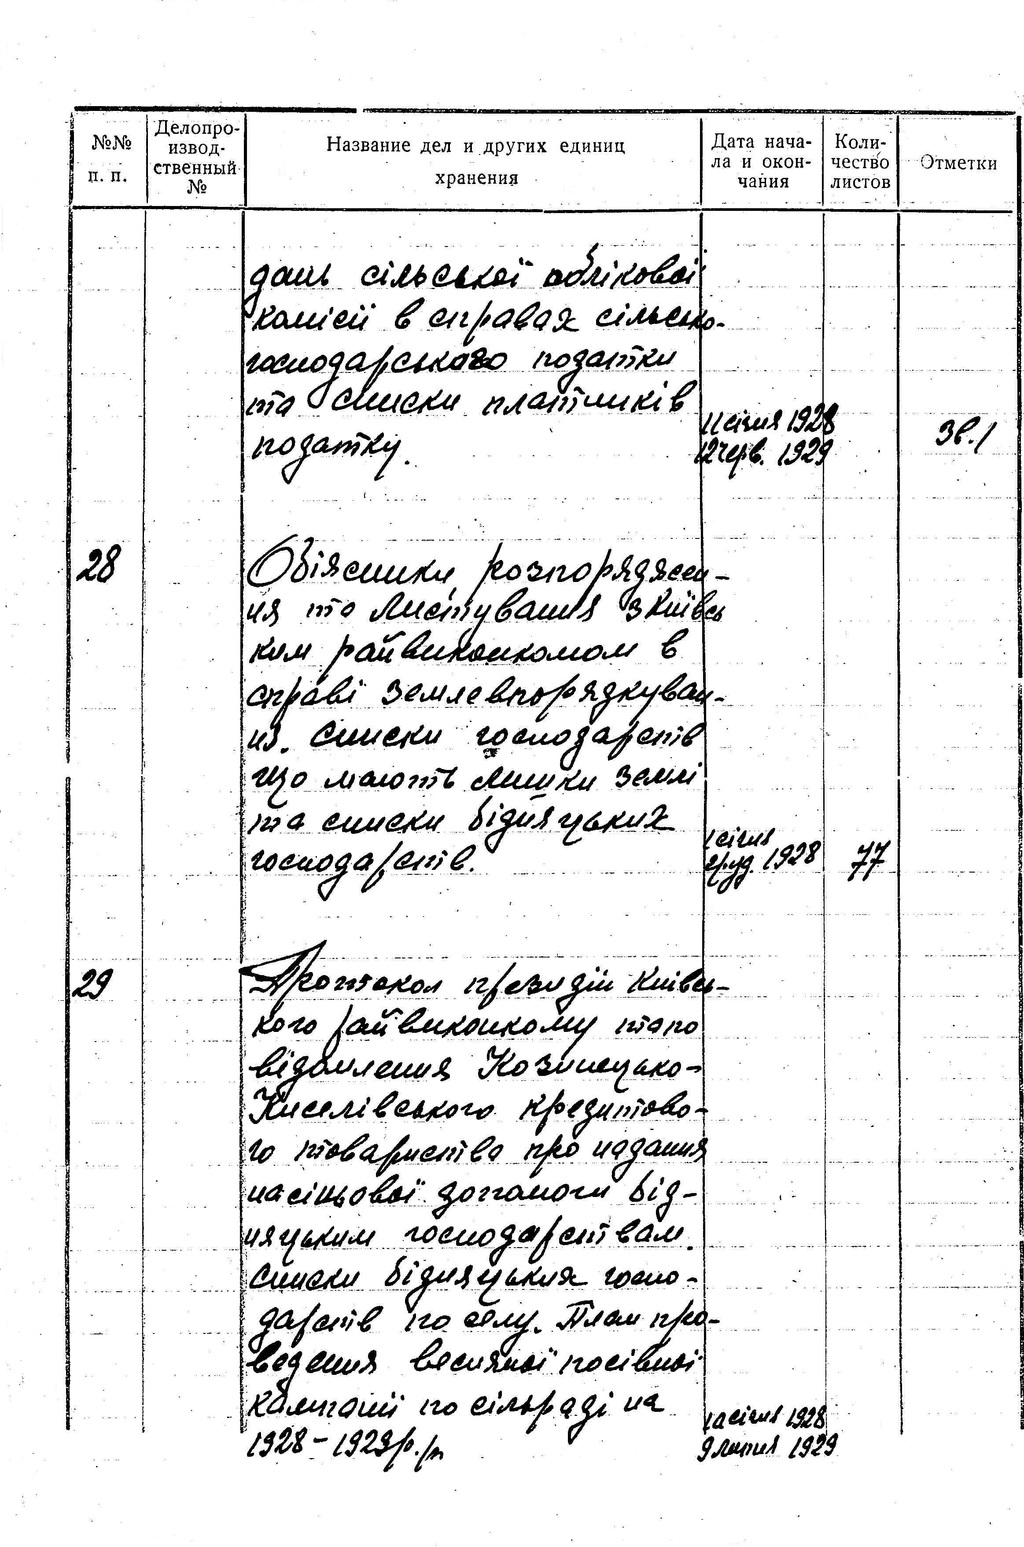 №№ п. п.
Делопроизводственный №
Название дел и других единиц хранения
Дата начала и окончания
Количество листов
Отметки
дань сільської облікової
комісії в справах сільсько-
господарського податки
та списки платників
податку.
11 січня 1928
12 черв. 1929
Зв.1
28
Обіжники, розпоряджен-
ня та листування з Київсь
ким райвиконкомом в
справі землевпорядкуван-
ня. Списки господарств
що мають лишки землі
та списки бідняцьких
господарств.
1 січня
груд. 1928
77
29
Протокол президії Київсь-
кого райвиконкому та по
відомлення
Кредитово-
го товариства про надання
насіньової допомоги бід-
няцьким господарствам.
Списки бідняцьких госпо-
дарств по селу. План про-
ведення весняної посівної
кампанії по сільраді на
1928-1929 р./р.
січня 1928
9 липня 1929